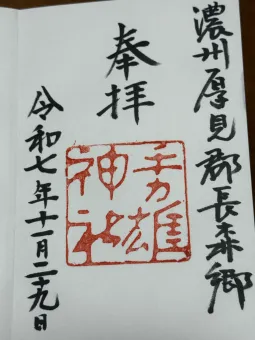 濃州厚見郡長森郷
奉拝
手力雄神社
令和七年十一月二十九日